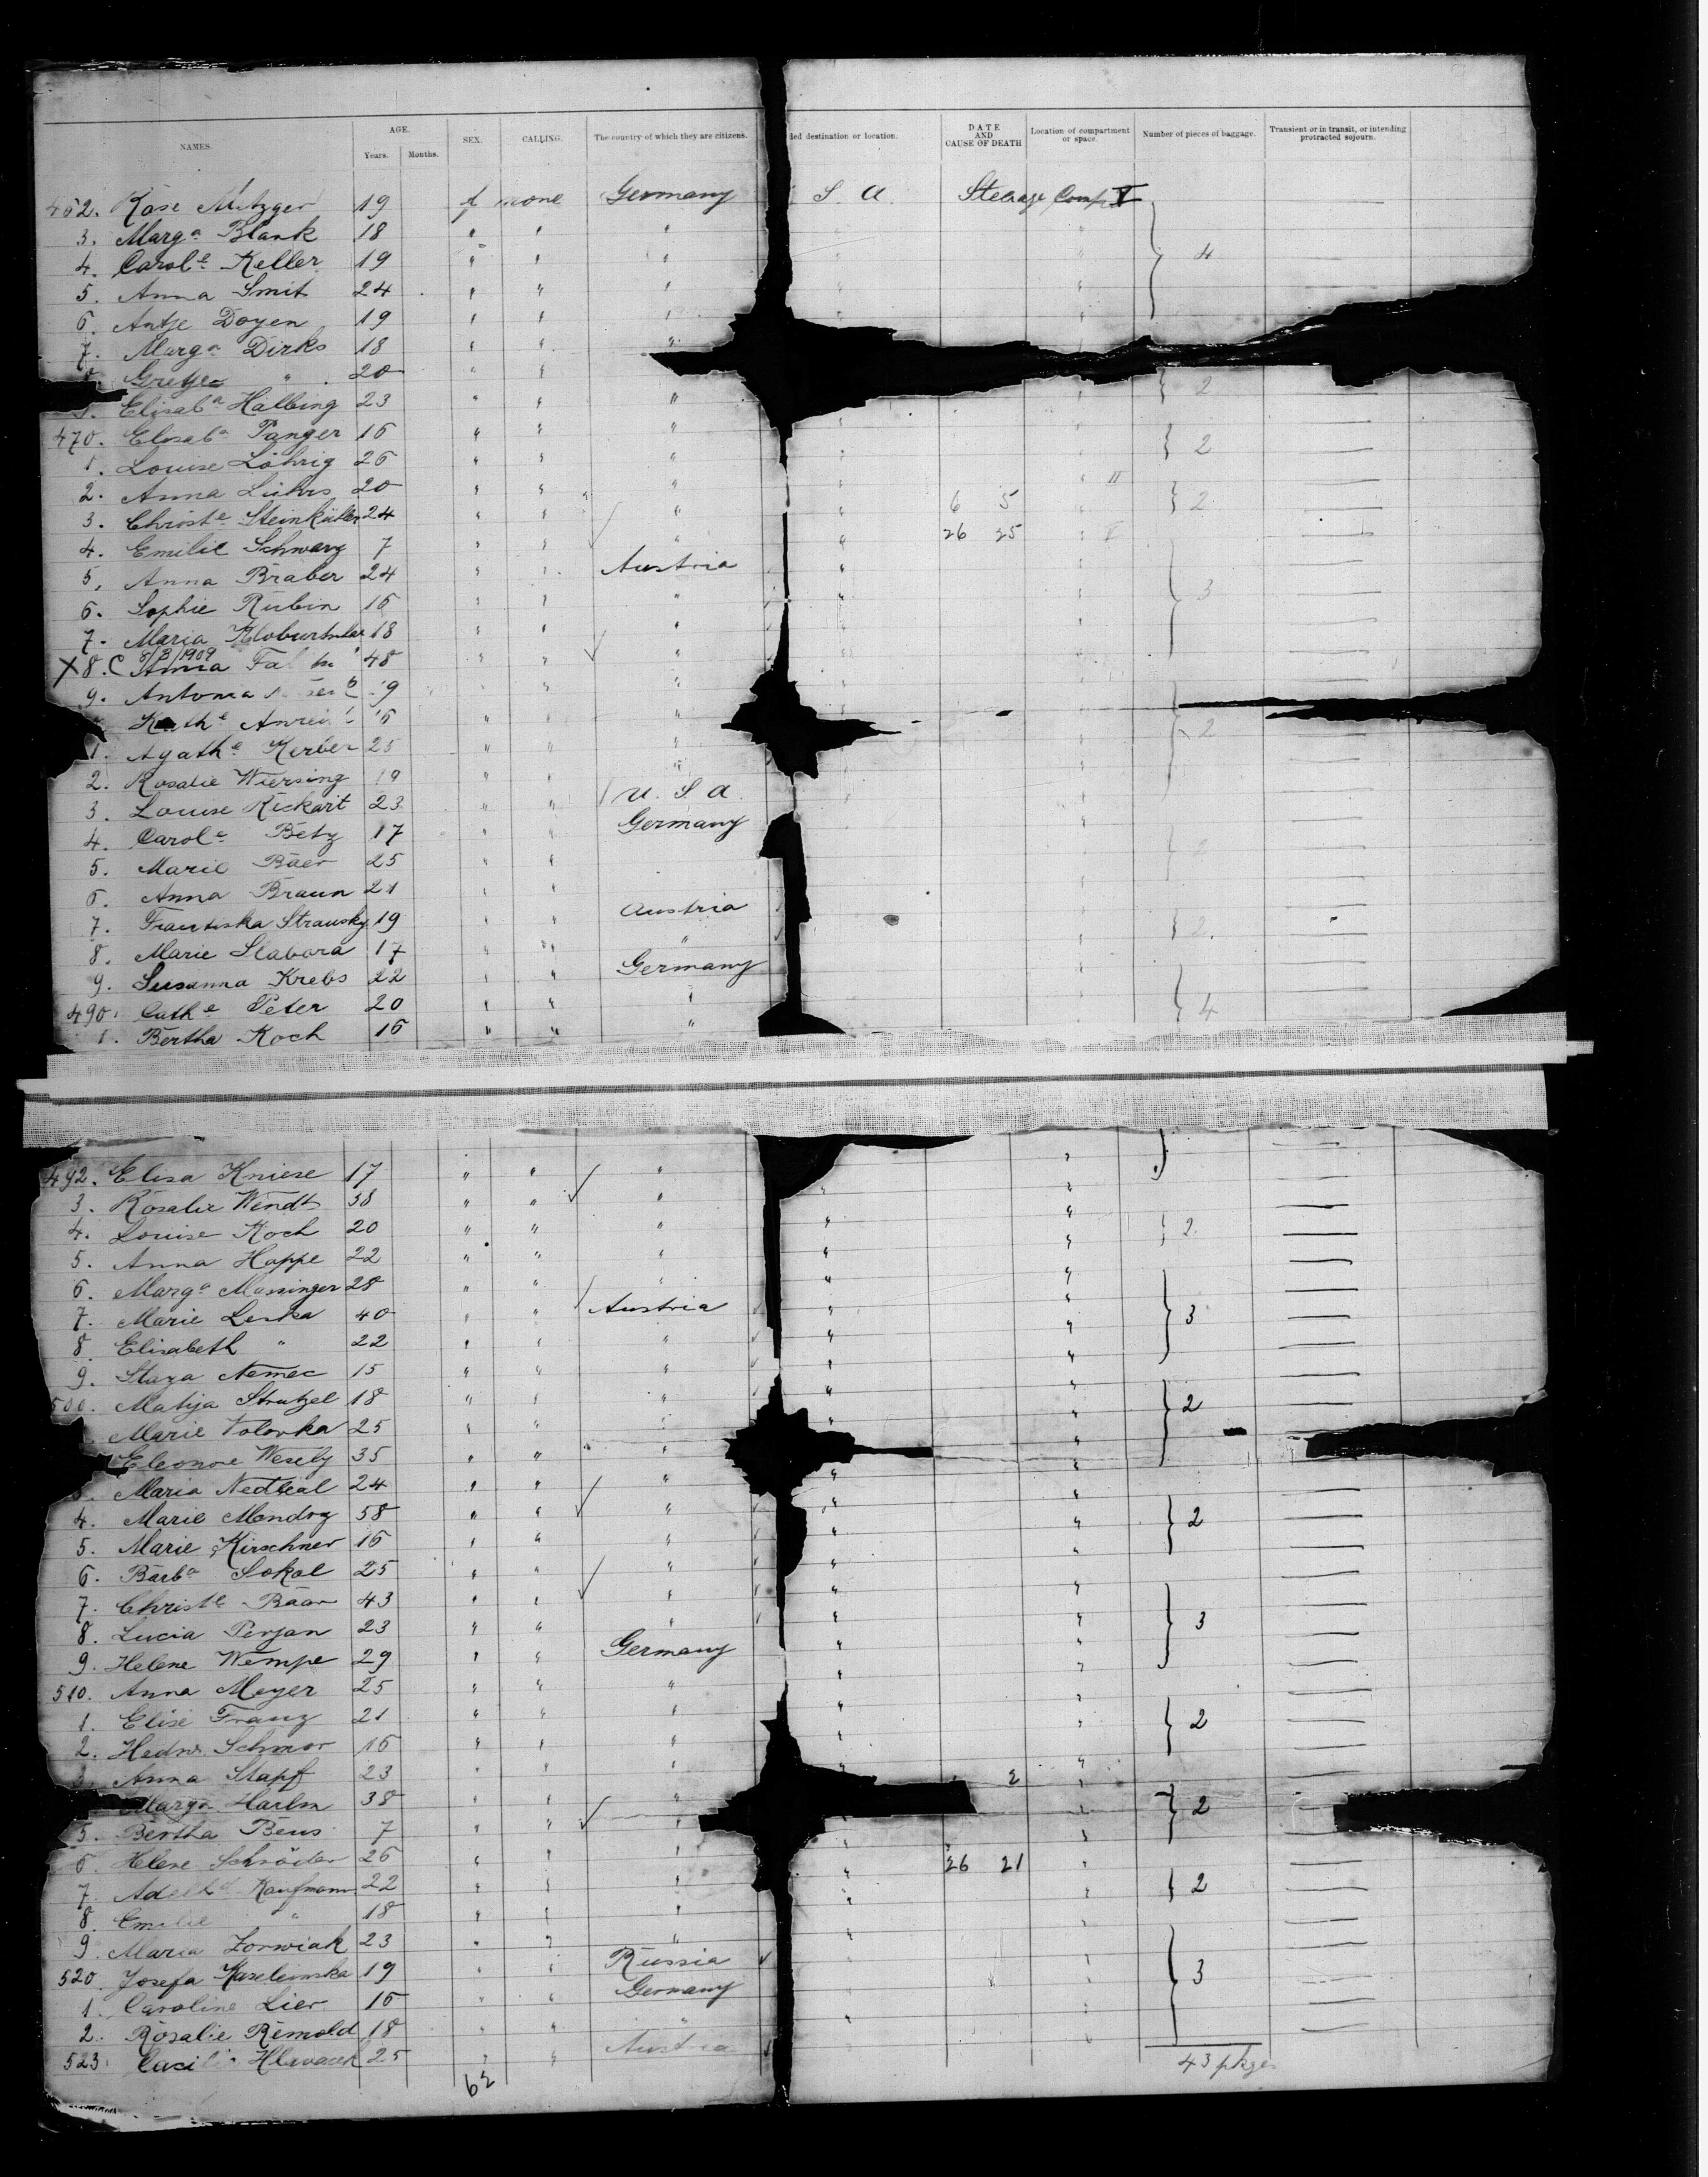 NAMES. AGE. Years. Months. SEX. CALLING. The country of which they are citizens. ded destination or location. DATE AND CAUSE OF DEATH Location of compartment or space. Number of pieces of baggage. Transient or in transit, or intending protracted sojourn.
462. Rosa Metzger 19 f none Germany S. A. Steerage Comp. V
3. Marga Blank 18 " " " "
4. Carole Keller 19 " " " 4
5. Anna Smit 24 " " "
6. Antje Doyen 19 " " "
7. Marga Dirks 18 " " "
Gretje " 20 " " "
Elisaba Halbing 23 " " " 2
470. Elisaba Panger 16 " " "
1. Louise Löhrig 26 " " " 2
2. Anna Lührs 20 " " " " II
3. Christe 24 " " " 6 5 2
4. Emilie Schwarz 7 " " " 26 25 " V
5. Anna Braber 24 " " Austria
6. Sophie Rubin 16 " " " 3
7. Maria 18 " " "
X 8. C 8/3/1909 Anna 48 " " "
9. Antonia 19 " " "
Kathe 16 " " " 2
1. Agathe Kerber 25 " " "
2. Rosalie Wiersing 19 " " "
3. Louise Rickart 23 " " U. S. A.
4. Carole Betz 17 " " Germany
5. Marie Baer 25 " " 2
6. Anna Braun 21 " "
7. Frantiska Strausky 19 " " Austria
8. Marie Slabora 17 " " " 2.
9. Susanna Krebs 22 " " Germany
490. Cathe Peter 20 " " "
1. Bertha Koch 16 " " " 4
492. Elisa Kniese 17 " " "
3. Rosalie Wendt 38 " " "
4. Louise Koch 20 " " " 2
5. Anna Happe 22 " " "
6. Marga Massinger 28 " " "
7. Marie Leska 40 " " Austria 3
8. Elisabeth " 22 " " "
9. Staza Nemec 15 " " "
500. Matija Strutzel 18 " " " 2
Marie Volovka 25 " " "
Eleonore Wesely 35 " " "
3. Maria Nedbal 24 " " "
4. Marie Mendrz 58 " " " 2
5. Marie Kirschner 16 " " "
6. Barba Sokol 25 " " "
7. Christe Baar 43 " " "
8. Lucia Perjan 23 " " " 3
9. Helene Wempe 29 " " Germany
510. Anna Meyer 25 " " "
1. Elise Franz 21 " " " 2
2. Hedw. Schmor 16 " " "
3. Anna Stapf 23 " " " 2
Marga Harlm 38 " " " 2
5. Bertha Beus 7 " " "
6. Helene Schröder 26 " " " 26 21
7. Adelhd Kaufmann 22 " " " 2
8. Emilie " 18 " " "
9. Maria Zorwiak 23 " " "
520. Josefa 19 " " Russia 3
1. Caroline Lier 16 " " Germany
2. Rosalie Remold 18 " " "
523. Hlavacek 25 " " Austria
62 43 pkges